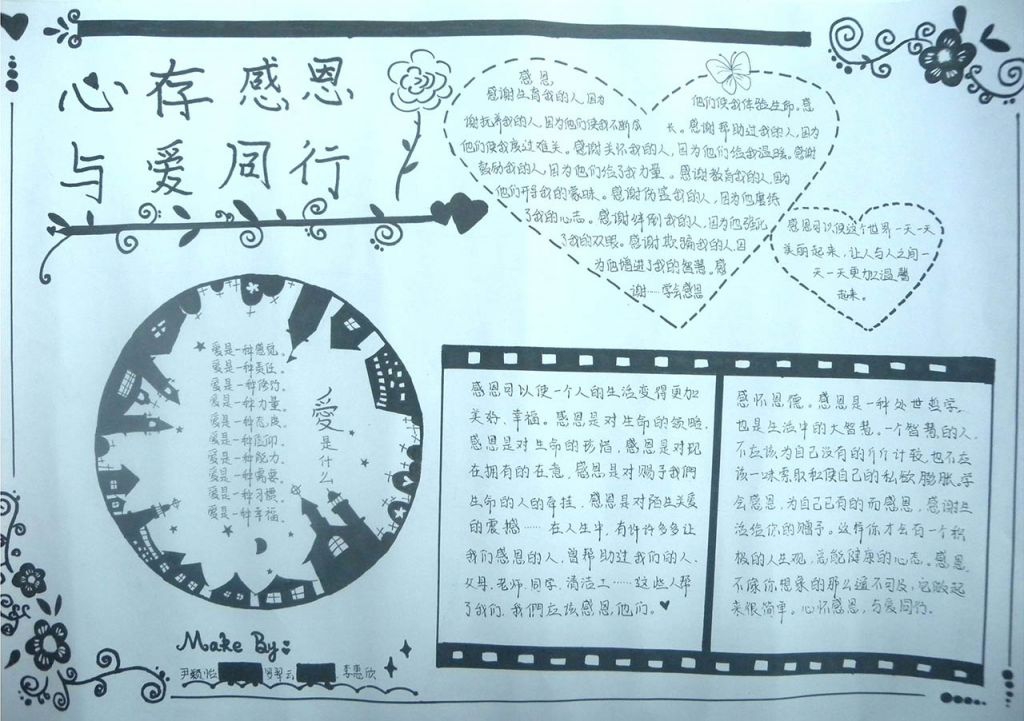 心存感恩
与爱同行
感恩
感谢生育我的人,因为
他们使我体验生命。感
谢抚养我的人,因为他们使我不断成
长。感谢帮助过我的人,因为
他们使我度过难关。感谢关怀我的人,因为他们给我温暖。感谢
鼓励我的人,因为他们给了我力量。感谢教育我的人,因为
他们开导我的蒙昧。感谢伤害我的人,因为他磨练
了我的心志。感谢绊倒我的人,因为他强化
了我的双眼。感谢欺骗我的人,因
为他增进了我的智慧。感
谢……学会感恩
感恩可以使这个世界一天一天
美丽起来,让人与人之间一
天一天更加温馨
起来。
爱是什么
爱是一种感觉。
爱是一种责任。
爱是一种力量。
爱是一种态度。
爱是一种信仰。
爱是一种能力。
爱是一种需要。
爱是一种习惯。
爱是一种幸福。
感恩可以使一个人的生活变得更加
美好,幸福。感恩是对生命的领略,
感恩是对生命的珍惜,感恩是对现
在拥有的在意,感恩是对赐予我們
生命的人的牵挂,感恩是对陌生关爱
的震撼……在人生中,有许许多多让
我们感恩的人,曾帮助过我们的人,
父母,老师,同学,清洁工……这些人帮
了我们,我們应该感恩他们。
感怀恩德。感恩是一种处世哲学,
也是生活中的大智慧。一个智慧的人,
不应该为自己没有的斤斤计较,也不应
该一味索取和使自己的私欲膨胀。学
会感恩,为自己已有的而感恩,感谢生
活给你的赠予。这样你才会有一个积
极的人生观,健康的心态。感恩
不像你想象的那么遥不可及,它做起
来很简单。心怀感恩,与爱同行。
Make By:
李惠欣